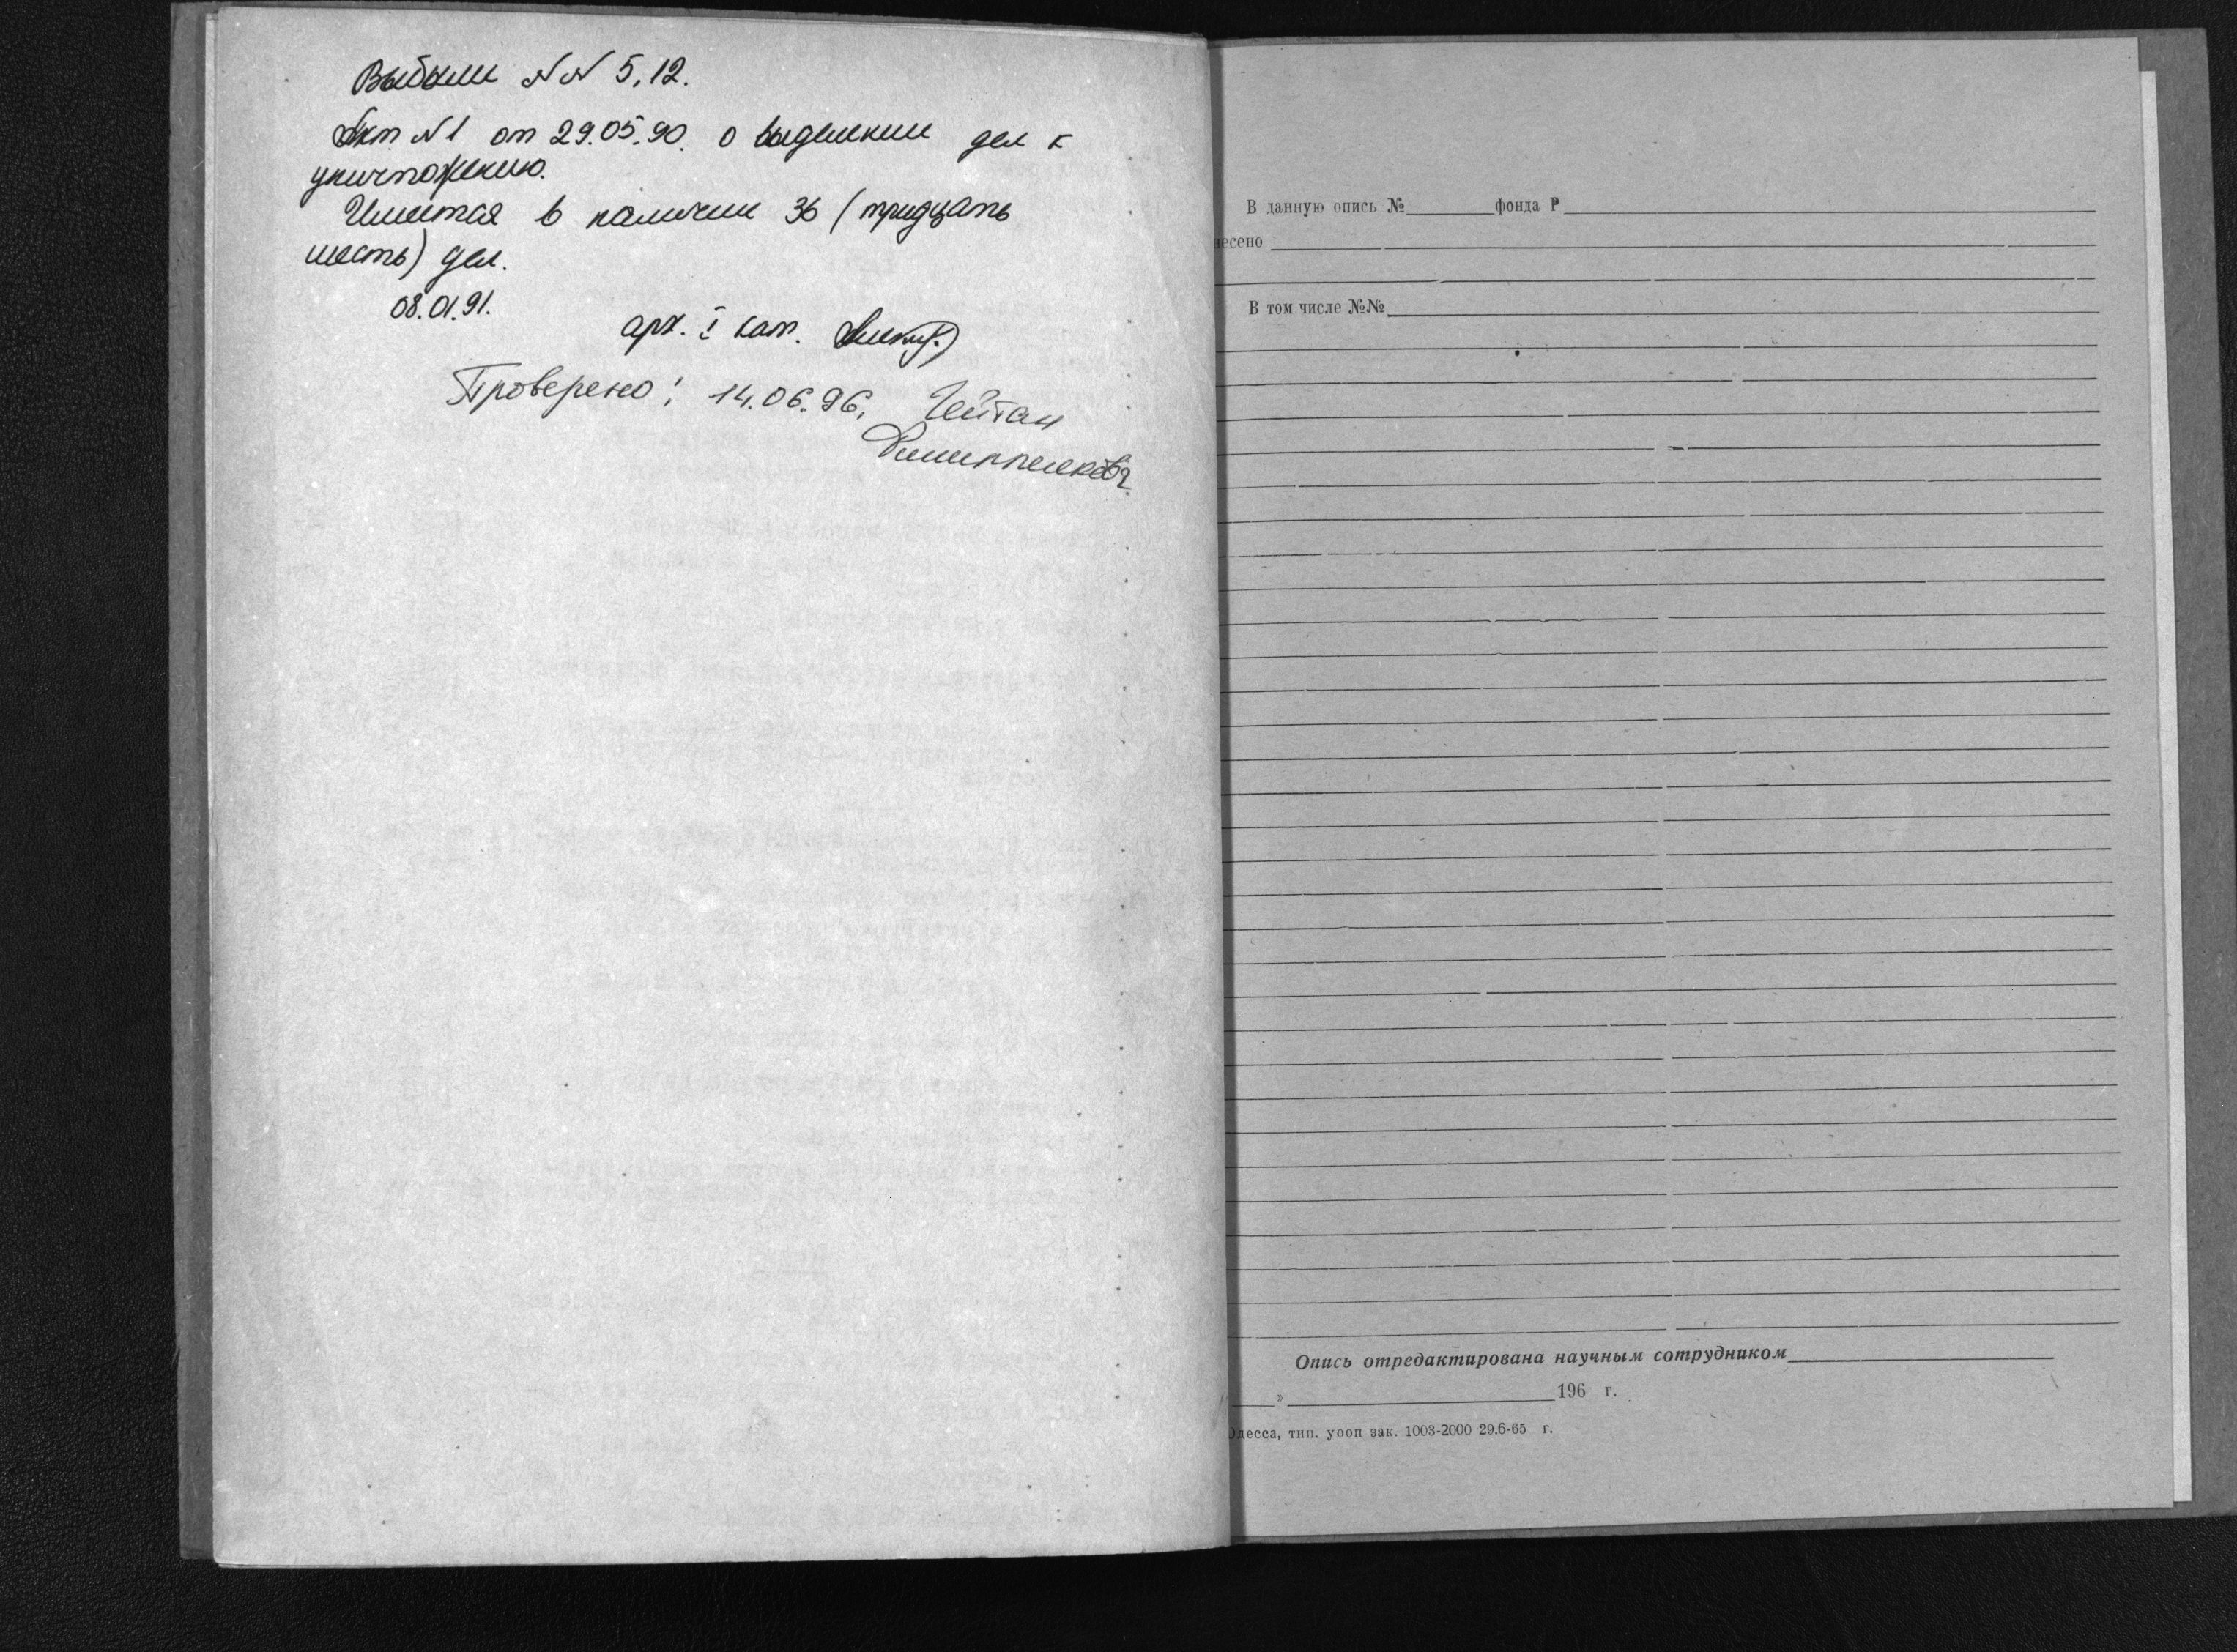 Выбыли NN 5, 12.
Акт N1 от 29.05.90. о выделении дел к
уничтожению.
Имеется в наличии 36 (тридцать
шесть) дел.
08.01.91.
арх. I кат.
Проверено: 14.06.96. Чейтан
В данную опись №________фонда Р
несено
В том числе №№
Опись отредактирована научным сотрудником
____»____________196 г.
Одесса, тип. уооп зак. 1003-2000 29.6-65 г.